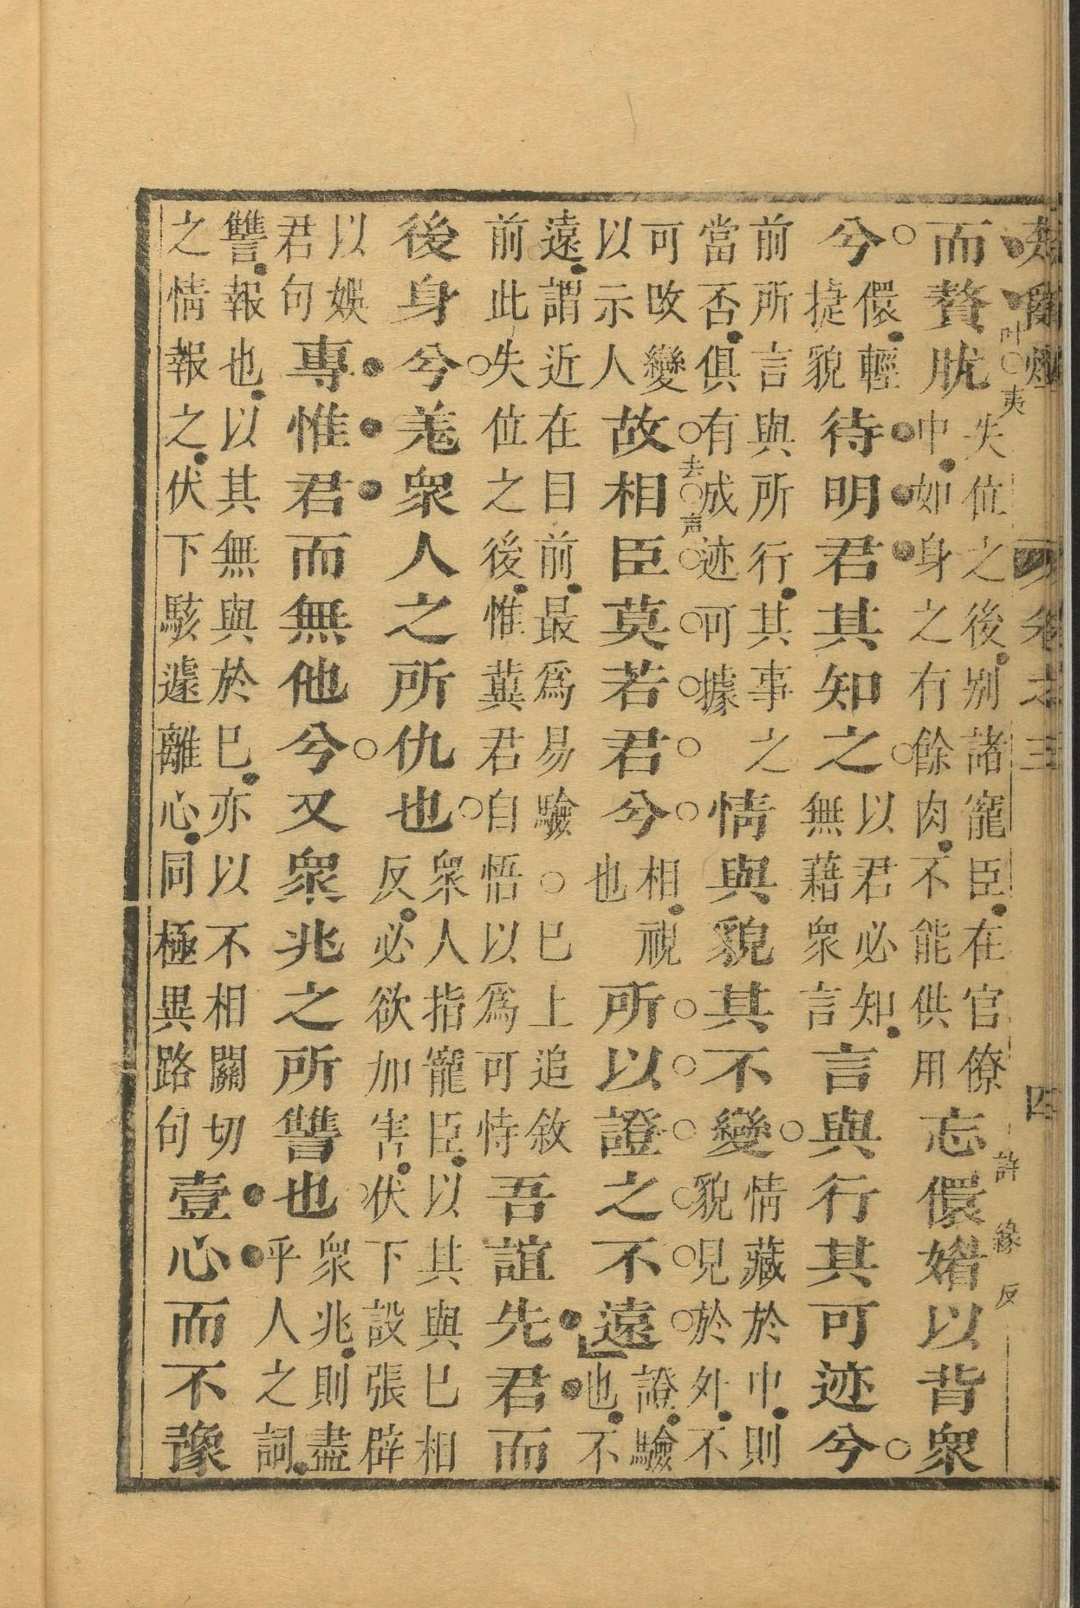 卷之三
四
而贅肬失位之後別諸寵臣在官僚中如身之有餘肉不能供用忘儇媚以背衆
叶夷
許緣反
兮儇輕捷貌待明君其知之以君必知無藉衆言言與行其可迹兮
前所言與所行其事之當否俱有成迹可據情與貌其不變情藏於中則貌見於外不
可改變以示人故相臣莫若君兮相視也所以證之不遠證驗也不
去声
遠謂近在目前最爲易驗○已上追敘前此失位之後惟冀君自悟以爲可恃吾誼先君而
後身兮羌衆人之所仇也衆人指寵臣以其與已相反必欲加害伏下設張辟
以娛君句專惟君而無他兮又衆兆之所讐也衆兆則盡乎人之詞
讐報也以其無與於已亦以不相關切之情報之伏下駭遽離心同極異路句壹心而不豫